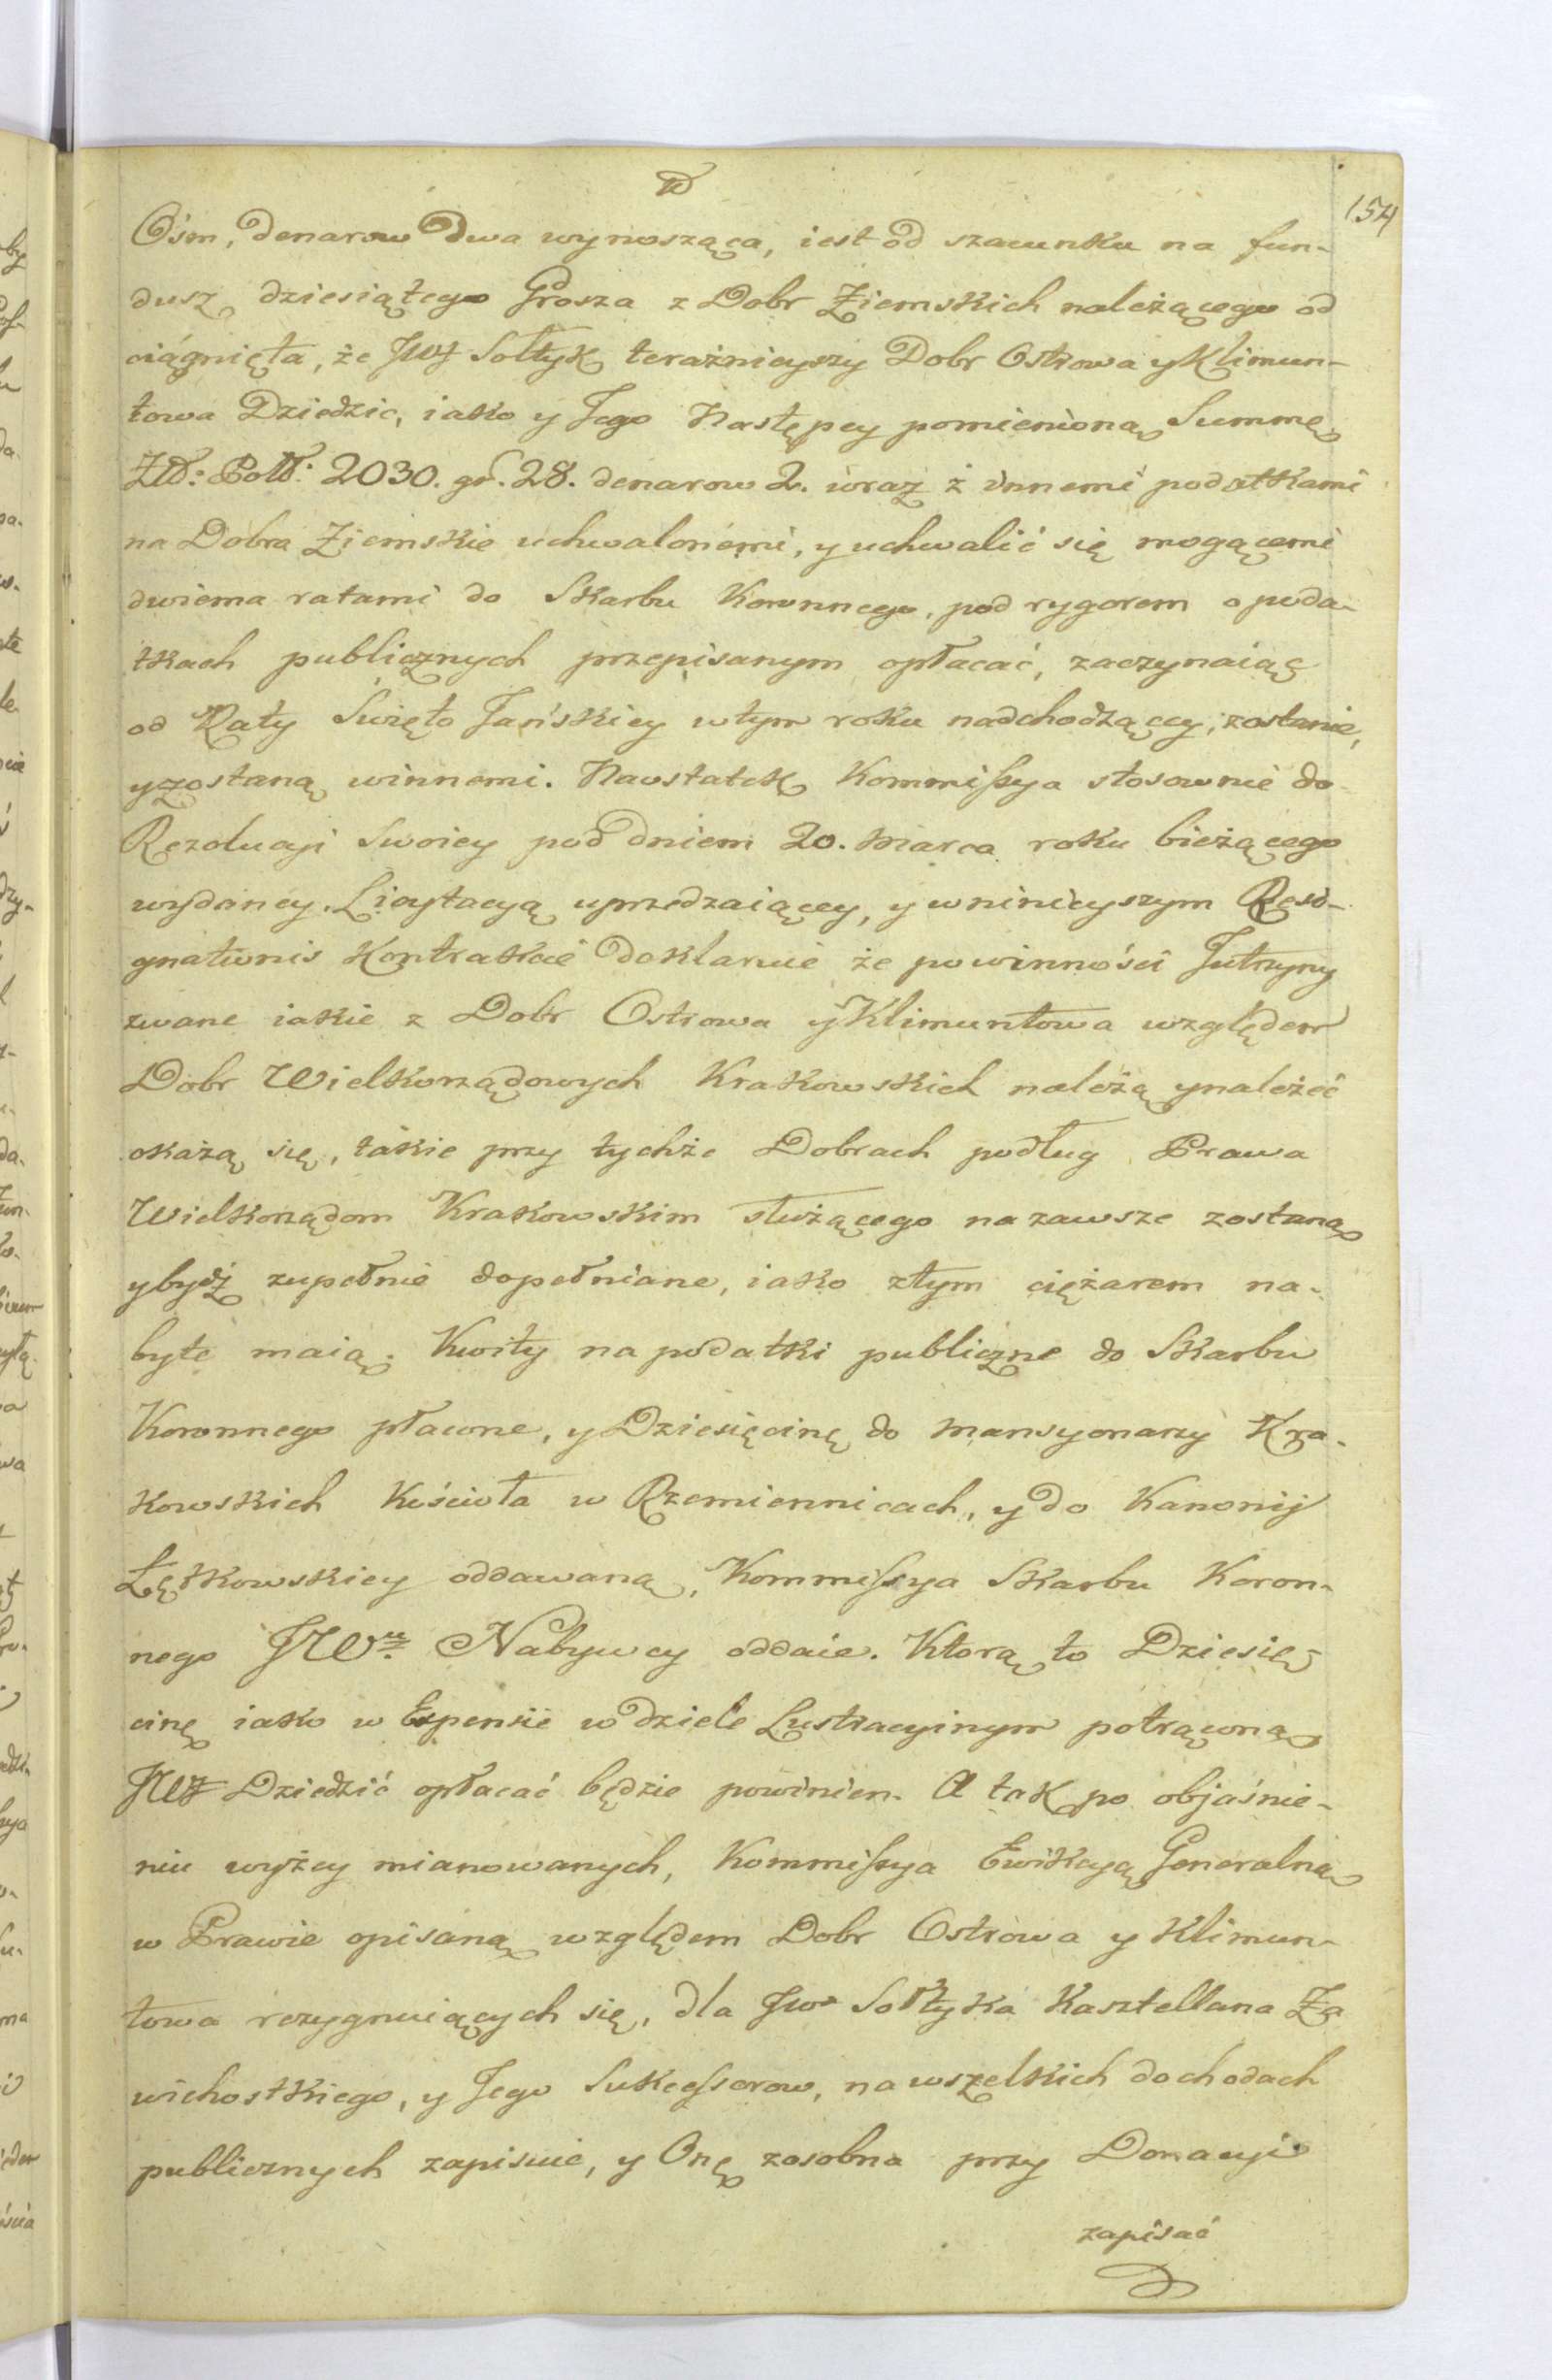 154
Ośm, denarow Dwa wynosząca, iest od szacunku na fun-
dusz dziesiątego Grosza z Dobr Ziemskich należącego od
ciągnięta, że JWJ Sołtyk teraźnieyszy Dobr Ostrowa y Klimun-
towa Dziedzic, iako y Jego Następcy pomienioną Summę
Złł: Poll: 2030. gr. 28. denarow 2. wraz z innemi podatkami
na Dobra Ziemskie uchwalonemi, y uchwalić się mogącemi
dwiema ratami do Skarbu Koronnego, pod rygorem o poda-
tkach publicznych przepisanym opłacać, zaczynaiąc
od Raty Swięto Jańskiey w tym roku nadchodzącey, zostanie,
y zostaną winnemi. Nawstatek Kommissya stosownie do
Rezolucyi Swoiey pod dniem 20. Marca roku bieżącego
wydaney. Licytacyą uprzedzaiącey, y w ninieyszym Resi-
gnationis Kontrakcie deklaruie że powinności Jutrzyny
zwane iakie z Dobr Ostrowa y Klimuntowa względem
Dobr Wielkorządowych Krakowskich należą y należeć
okażą się, takie przy tychże Dobrach podług Prawa
Wielkorządom Krakowskim służącego na zawsze zostaną
y bydź zupełnie dopełniane, iako z tym ciężarem na-
byte maią. Kwity na podatki publiczne do Skarbu
Koronnego płacone, y Dziesięcinę do Mansyonarzy Kra-
kowskich Kościoła w Rzemiennicach, y do Kanonij
Łętkowskiey oddawaną, Kommissya Skarbu Koron-
nego JWu. Nabywcy oddaie. Ktorą to Dziesię-
cinę iako w Expensie w dziele Lustracyinym potrąconą
JWJ Dziedzić opłacać będzie powinien. A tak po objaśnie-
niu wyżey mianowanych, Kommissya Ewikcyą Generalną
w Prawie opisaną względem Dobr Ostrowa y Klimun-
towa rezygnuiących się, dla JW Sołtyka Kasztellana Za
wichostkiego, y Jego Sukcessorow, na wszelkich dochodach
publicznych zapisuie, y Onę zosobna przy Donacyi
zapisać